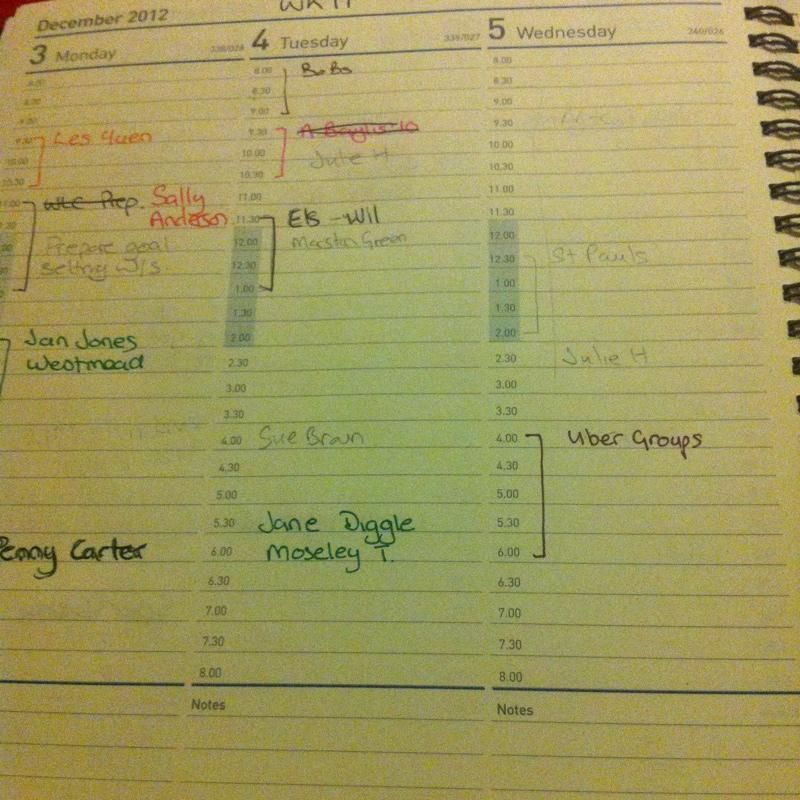 WK 11
December 2012
3 Monday 338/028
4 Tuesday 339/027
5 Wednesday 340/026
Les Yuen
WLC Prep. Sally
Anderson
Prepare goal
setting W/S
Jan Jones
Westmead
Penny Carter
8.00 BoBs
8.30
9.00
9.30
Julie H
10.00
10.30
11.00
11.30 Els - Wil
12.00 Marston Green
12.30
1.00
1.30
2.00
2.30
3.00
3.30
4.00 Sue Braun
4.30
5.00
5.30 Jane Diggle
6.00 Moseley T.
6.30
7.00
7.30
8.00
Notes
8.00
8.30
9.00
9.30
10.00
10.30
11.00
11.30
12.00
12.30 St Pauls
1.00
1.30
2.00
2.30 Julie H
3.00
3.30
4.00 Uber Groups
4.30
5.00
5.30
6.00
6.30
7.00
7.30
8.00
Notes